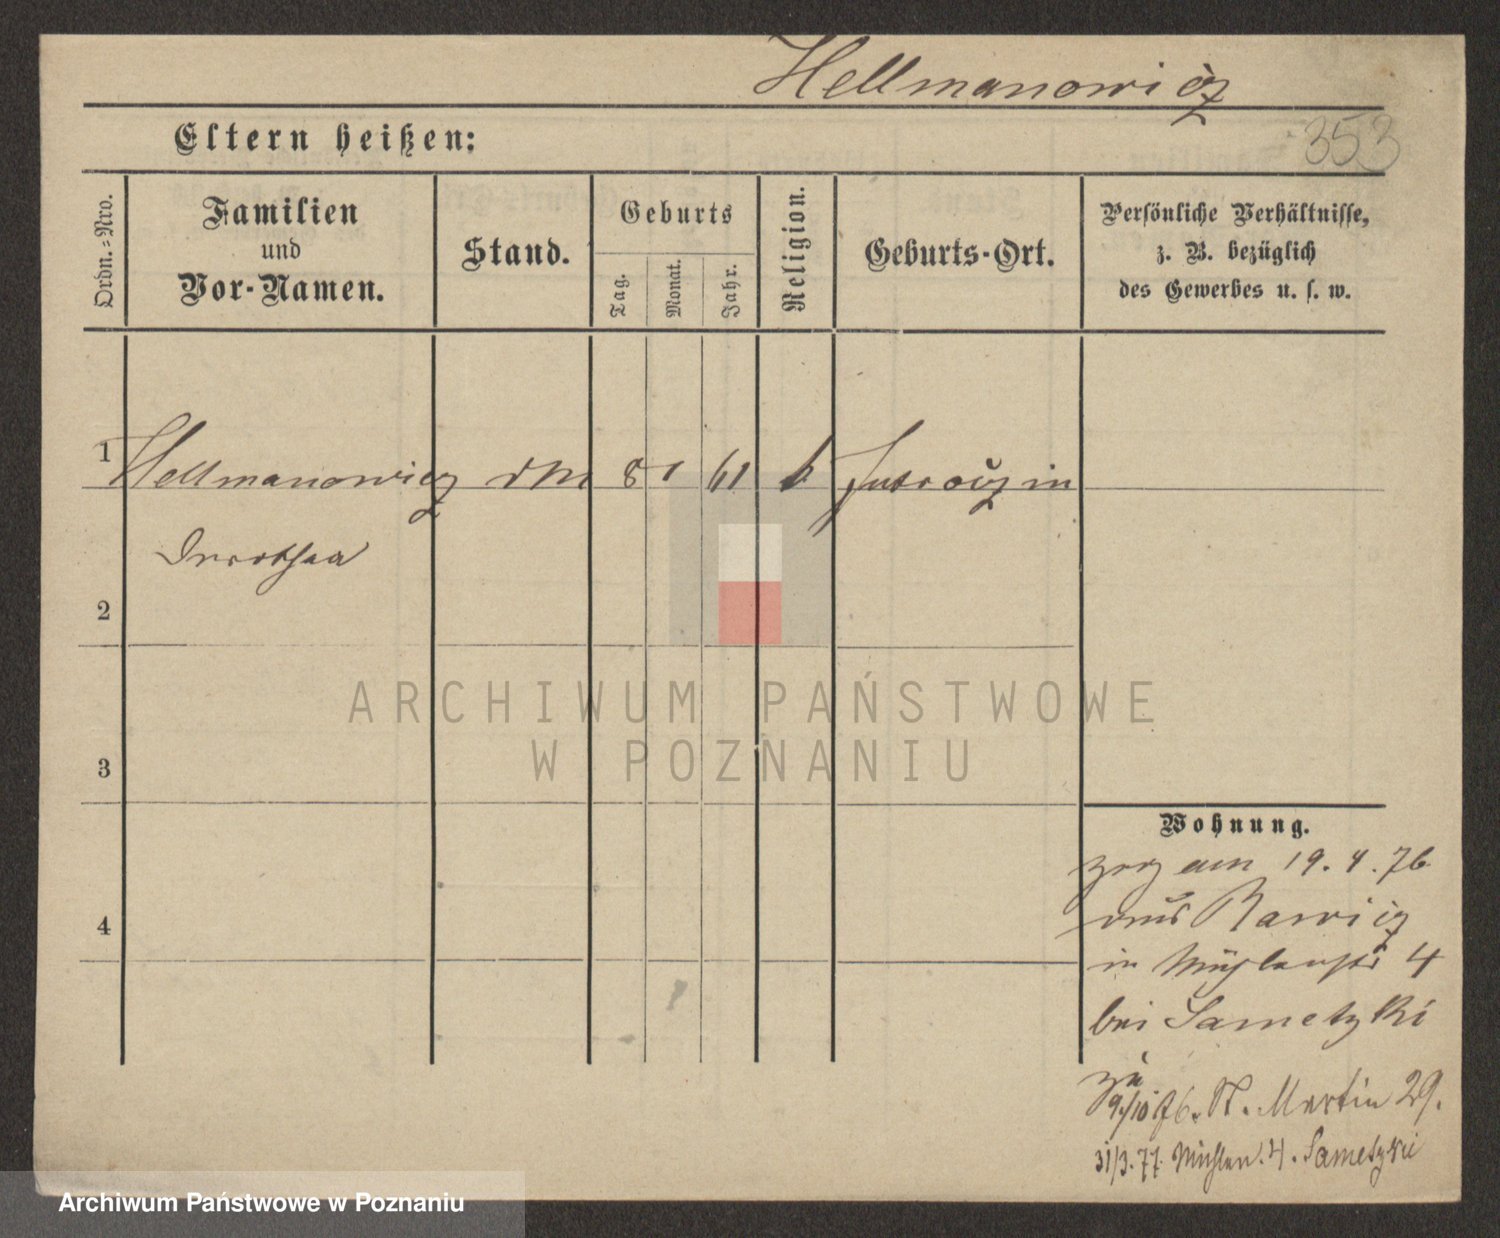 Hellmanowicz
353
Eltern heißen:
Ordn.=Nro.
Familien
und
Vor-Namen.
Stand.
Geburts
Tag.
Monat.
Jahr.
Religion.
Geburts-Ort.
Persönliche Verhältnisse,
z. B. bezüglich
des Gewerbes u. s. w.
1
Hellmanowicz 8 1 61 k Jutroczin
Dorothea
2
3
4
Wohnung.
zog am 19.4.76
aus Rawicz
in Mühlenstr 4
bei Sametzki
zu
9/10 76. St. Martin 29.
31/3. 77. Mühlen. 4. Sametzki
ARCHIWUM PAŃSTWOWE
W POZNANIU
Archiwum Państwowe w Poznaniu